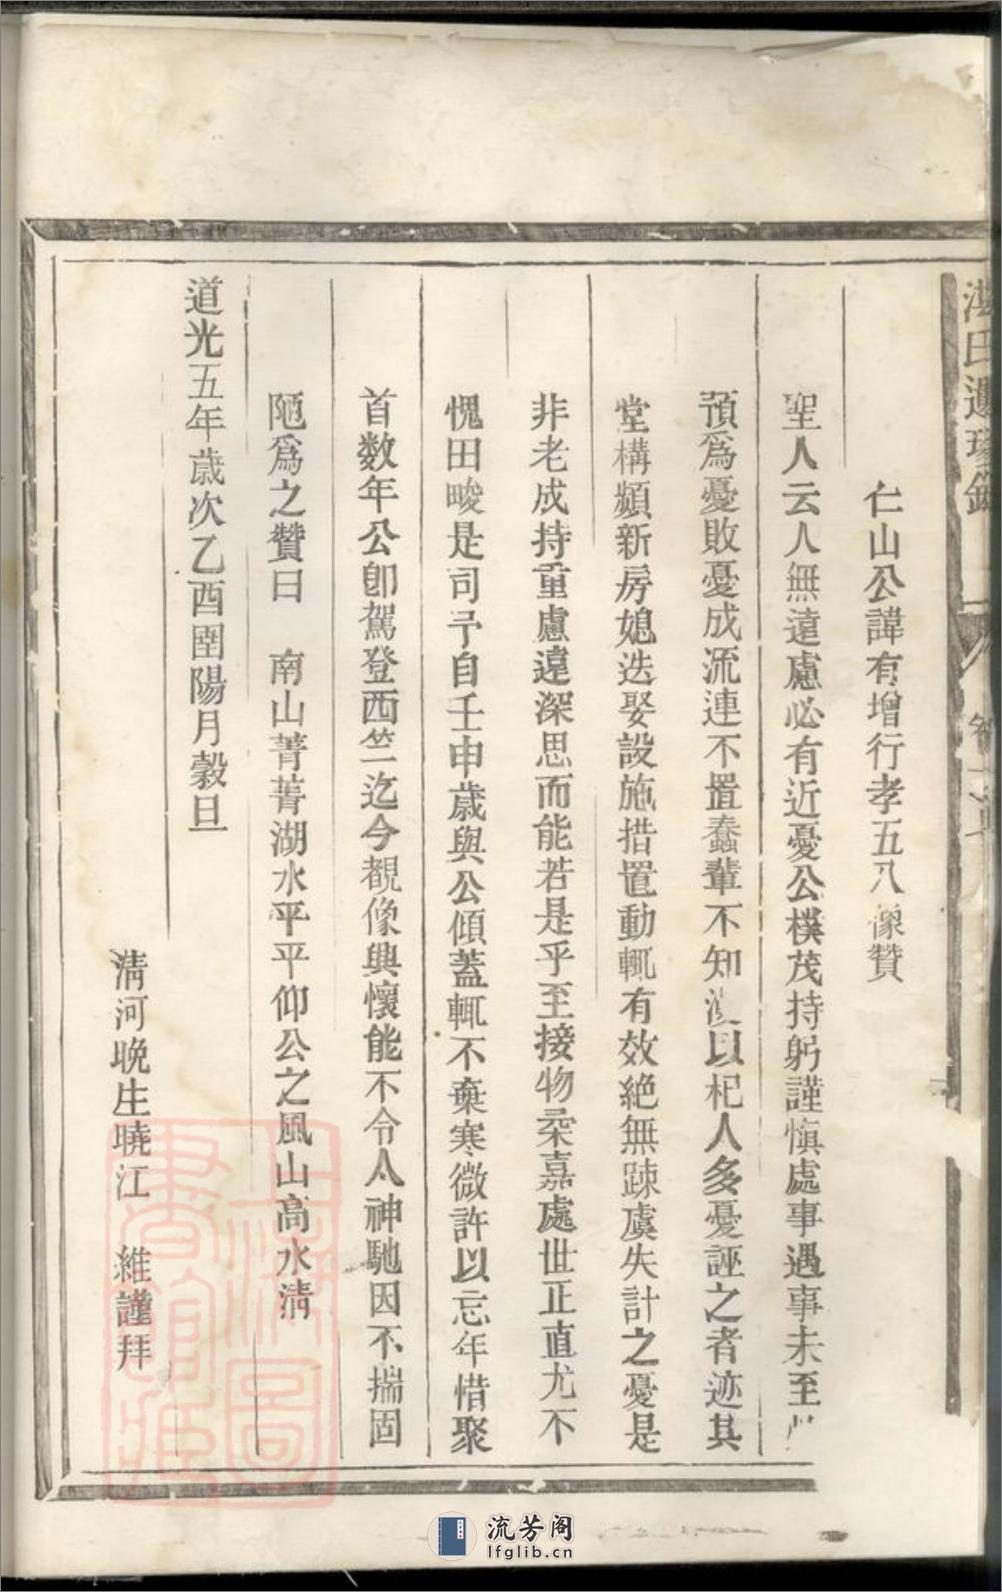 仁山公諱有增行孝五八像贊
聖人云人無遠慮必有近憂公樸茂持躬謹愼處事遇事未至
預爲憂敗憂成流連不置蠢輩不知以杞人多憂誣之者迹其
堂構頻新房媳迭娶設施措置動輒有效絶無踈虞失計之憂是
非老成持重慮遠深思而能若是乎至接物柔嘉處世正直尤不
愧田畯是司予自壬申歲與公傾蓋輒不棄寒微許以忘年惜聚
首数年公卽駕登西竺迄今覩像興懷能不令人神馳因不揣固
陋爲之贊曰　南山菁菁湖水平平仰公之風山高水淸
道光五年歲次乙酉圉陽月穀旦
淸河晚生曉江　維謹拜
氏遺珍錄
上海圖書館藏
流芳阁
lfglib.cn